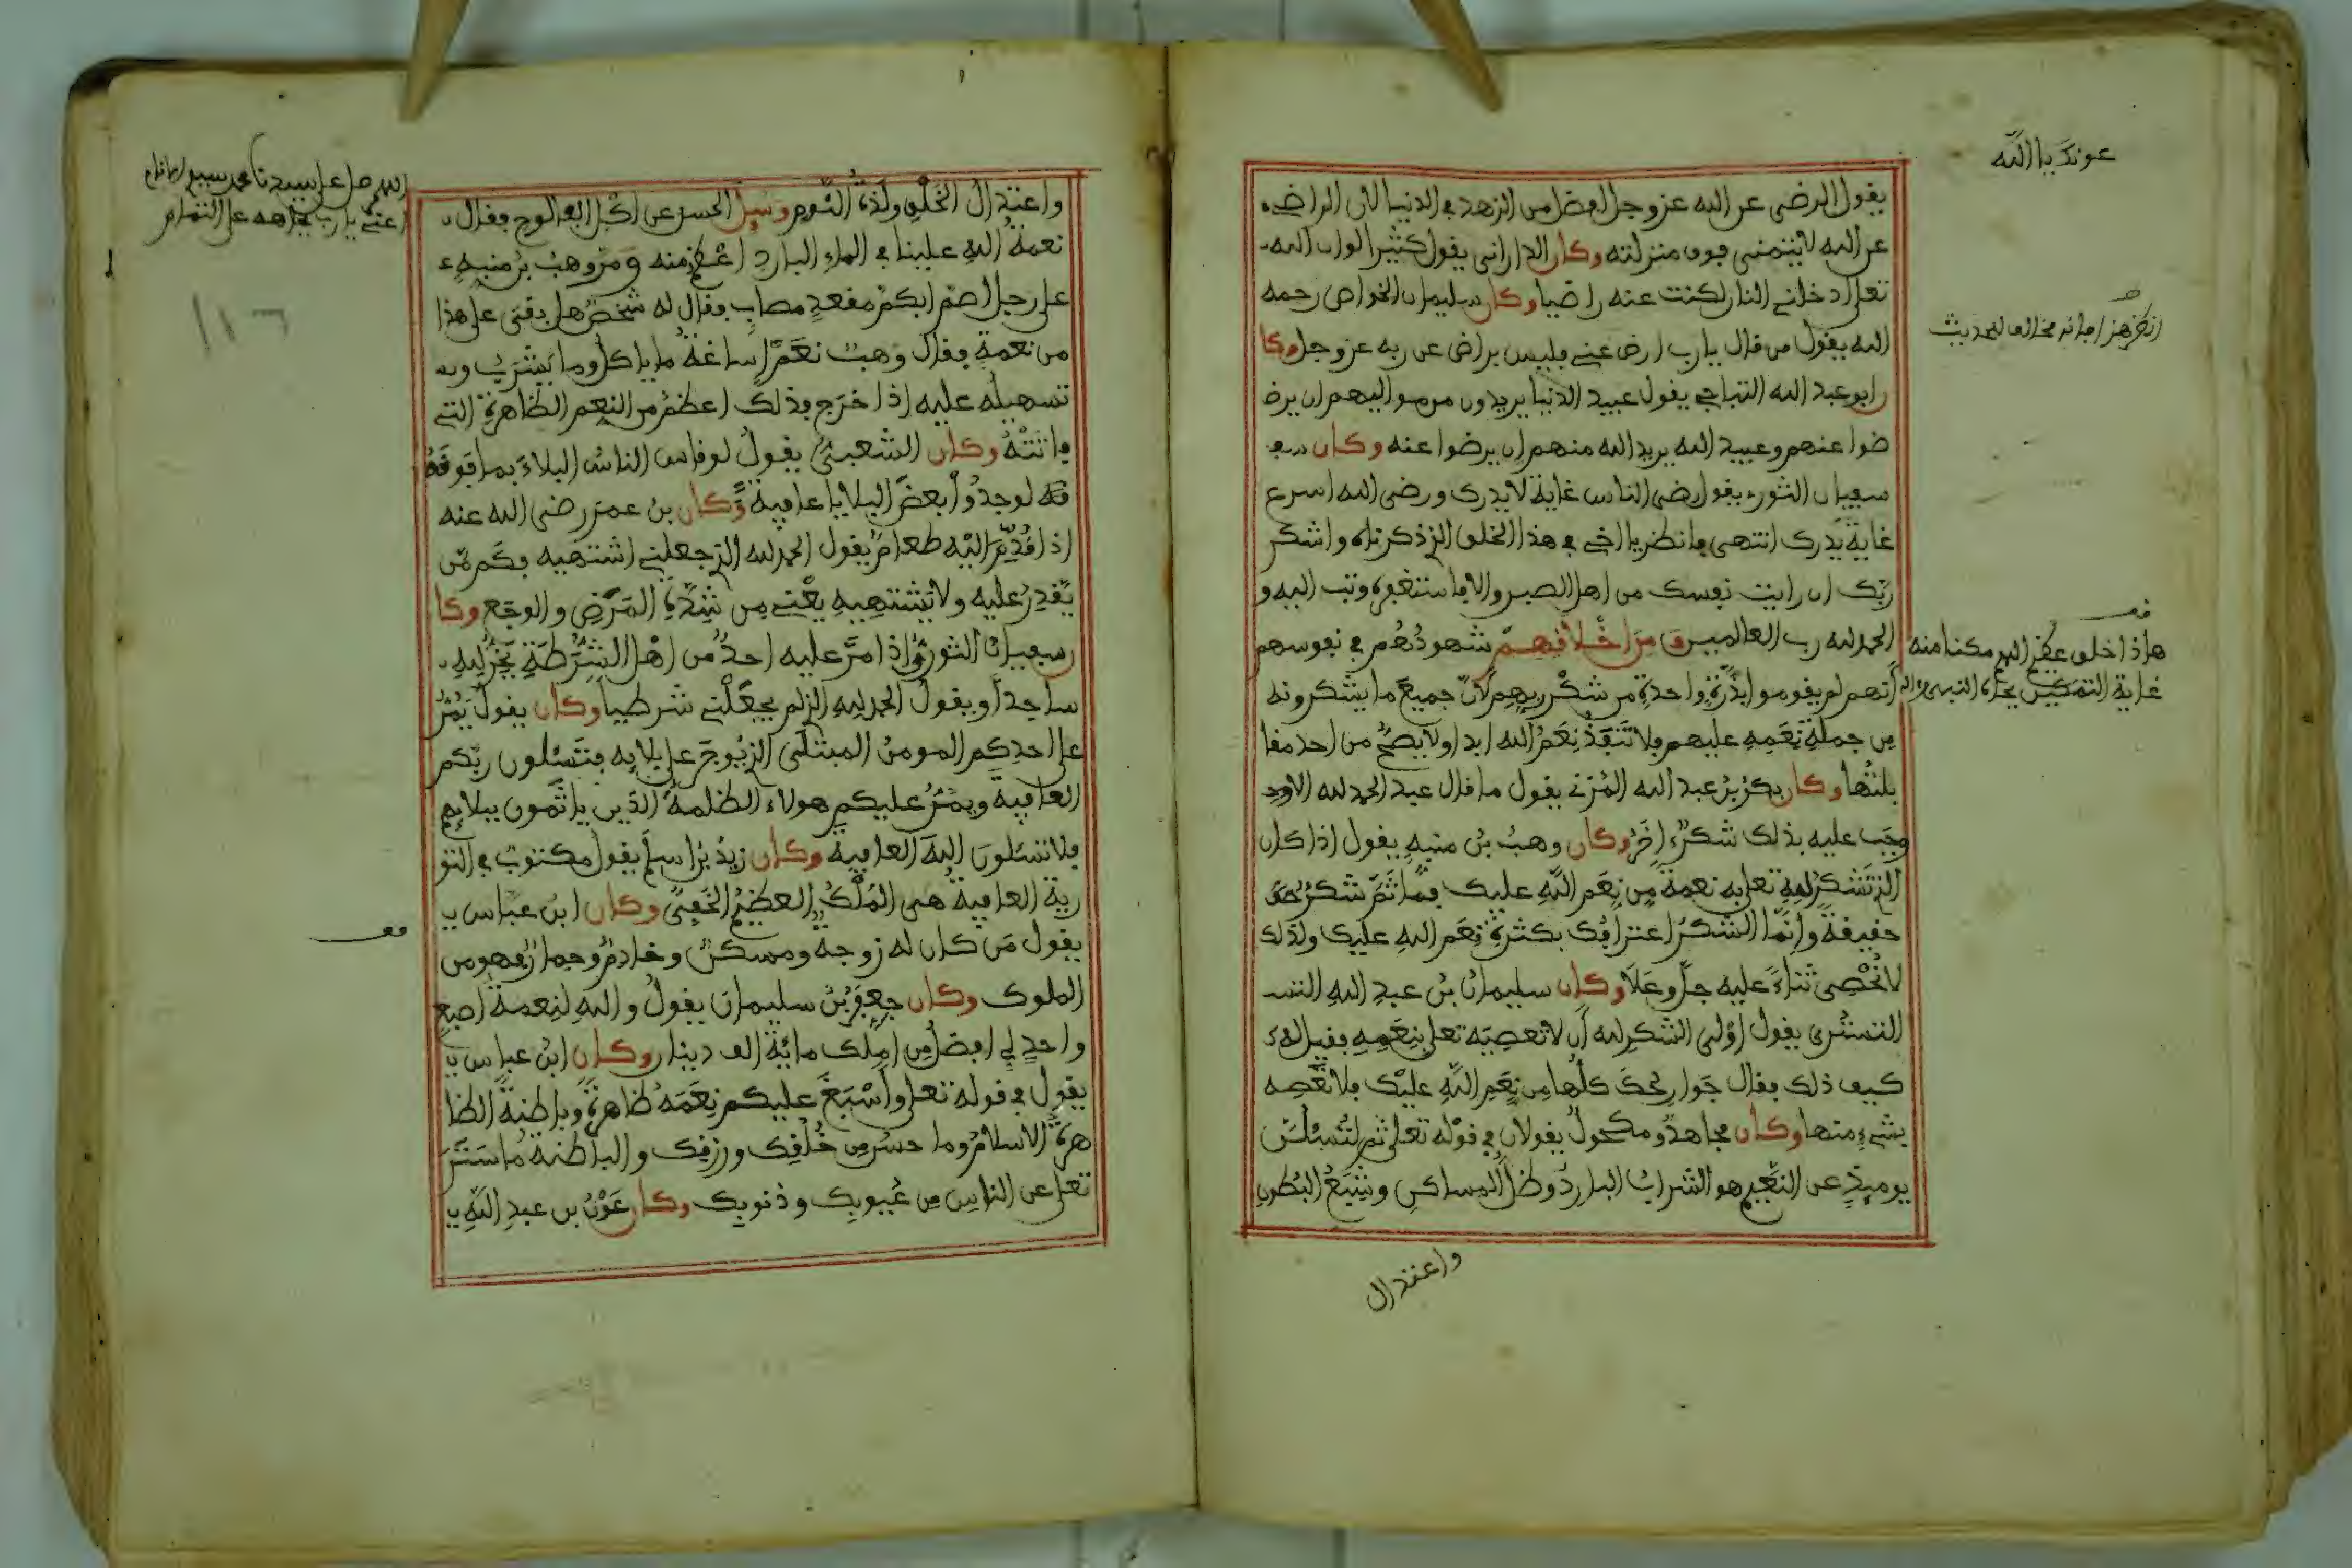 عونك يا الله
يقول الرضى عن الله عز وجل افضل من الزهد في الدنيا لان الراضي
عن الله لا يتمنى فوق منزلته وكان الداراني يقول كثيرا لو ان الله
تعلى ادخلني النار لكنت عنه راضيا وكان سليمان الخواص رحمه
الله يقول من قال يا رب ارض عني فليس براض عن ربه عز وجل وكا
ن ابو عبد الله النباجي يقول عبيد الدنيا يريدون من مواليهم ان يرضـ
ضوا عنهم وعبيد الله يريد الله منهم ان يرضوا عنه وكان سعـ
سفيان الثوري يقول رضى الناس غاية لا يدرك ورضى الله اسرع
غاية يدرك انتهى فانظر يا اخي في هذا الخلق الذي ذكرناه واشكر
ربك ان رايت نفسك من اهل الصبر والا فاستغفره وتب اليه و
الحمد لله رب العالمين ومن اخلاقهم شهودهم في نفوسهم
انهم لم يقوموا بذرة واحدة من شكر ربهم لان جميع ما يشكرونه
من جملة نعمه عليهم فلا تنفذ نعم الله ابدا ولا يصح من احد مقا
بلتها وكان بكر بن عبد الله المزني يقول ما قال عبد الحمد لله الا وقد
وجب عليه بذلك شكر اخر وكان وهب بن منبه يقول اذا كان
الذي تشكر لله تعلى به نعمة من نعم الله عليك فما ثم شكر حق
حقيقة وانما الشكر اعترافك بكثرة نعم الله عليك ولذلك
لا نحصي ثناء عليه جل وعلا وكان سليمان بن عبد الله التسـ
التستري يقول اولى الشكر لله ان لا تعصيه تعلى بنعمه فقيل له
كيف ذلك فقال جوارحك كلها من نعم الله عليك فلا تعصه
بشيء منها وكان مجاهد ومكحول يقولان في قوله تعلى ثم لتسئلن
يوميذ عن النعيم هو الشراب البارد وظل المساكن وشبع البطون
واعتدال
انظر هذا فانه مخالف للحديث
قف
هاذا خلق عظيم اللهم مكنا منه
غاية التمكين بجاه النبي واله
واعتدال الخلق ولذة النوم وسيل الحسن عن اكل الفالوج فقال
نعمة الله علينا في الماء البارد اعظم منه ومر وهب بن منبه
على رجل اصم ابكم مقعد مصاب فقال له شخص هل بقي على هذا
من نعمة فقال وهب نعم اساغة ما ياكل وما يشرب و
تسهيله عليه اذا خرج فذلك اعظم من النعم الظاهرة التي
فاتته وكان الشعبي يقول لو قاس الناس البلاء بما فوقه
قه لوجدوا بعض البلايا عافية وكان بن عمر رضى الله عنه
اذا قدم اليه طعام يقول الحمد لله الذي جعلني اشتهيه فكم من
يقدر عليه ولا يشتهيه يعني من شدة المرض والوجع وكا
ن سفيان الثوري اذا مر عليه احد من اهل الشرطة يخر لله
ساجدا ويقول الحمد لله الذي لم يجعلني شرطيا وكان يقول يمر
على احدكم المومن المبتلى الذي يوجر على بلايه فتسئلون ربكم
العافية ويمر عليكم هولاء الظلمة الذين ياثمون ببلايهم
فلا تسئلون الله العافية وكان زيد بن اسلم يقول مكتوب في التو
رية العافية هي الملك العظيم الخفي وكان ابن عباس يـ
يقول من كان له زوجة ومسكن وخادم وحمار فهو من
الملوك وكان جعفر بن سليمان يقول والله لنعمة اصبع
واحد لي افضل من املك ماية الف دينار وكان ابن عباس يـ
يقول في قوله تعلى واسبغ عليكم نعمه ظاهرة وباطنة الظا
هرة الاسلام وما حسن من خلقك ورزقك والباطنة ما ستر
تعلى عن الناس من عيوبك وذنوبك وكان عون بن عبد الله يـ
اللهم صل على سيدنا محمد
اعني يا رب بجاهه على التمام
١١٦
قف